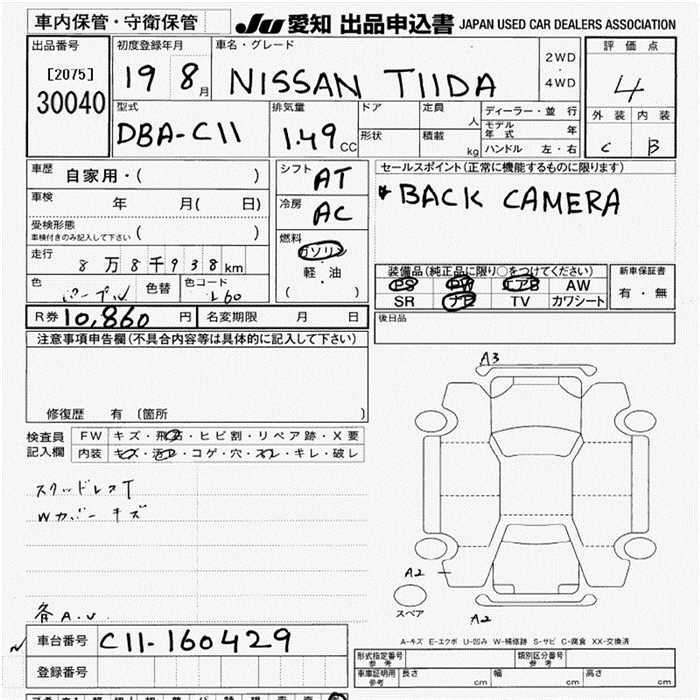 車内保管・守衛保管
JU 愛知 出品申込書 JAPAN USED CAR DEALERS ASSOCIATION
出品番号
[2075]
30040
初度登録年月
19 8月
車名・グレード
NISSAN TIIDA
2WD
・
4WD
評価点
4
外装 内装
C B
型式
DBA-C11
排気量
1.49 CC
ドア
形状
定員 人
積載 kg
ディーラー・並行
モデル年式 年
ハンドル 左・右
車歴 自家用・( )
車検 年 月( 日)
受検形態
車検付きのみ記入して下さい ( )
走行 8万8千938km
色
色替
色コード
L60
シフト AT
冷房 AC
燃料
ガソリン
軽・油
( )
セールスポイント(正常に機能するものに限ります)
BACK CAMERA
装備品(純正品に限り○をつけてください)
PS PW エアB AW
SR ナビ TV カワシート
新車保証書
有・無
R券 10,860円 名変期限 月 日
後日品
注意事項申告欄(不具合内容等は具体的に記入して下さい)
修復歴 有 〔箇所 〕
検査員
記入欄
FW キズ・飛石・ヒビ割・リペア跡・X要
内装 キズ・汚レ・コゲ・穴・スレ・キレ・破レ
Wカバーキズ
各A.U
A3
A2
A2
スペア
A-キズ E-エクボ U-凹み W-補修跡 S-サビ C-腐食 XX-交換済
車台番号 C11-160429
登録番号
型式指定番号
参考
類別区分番号
参考
車庫証明用
参考
長さ cm 幅 cm 高さ cm